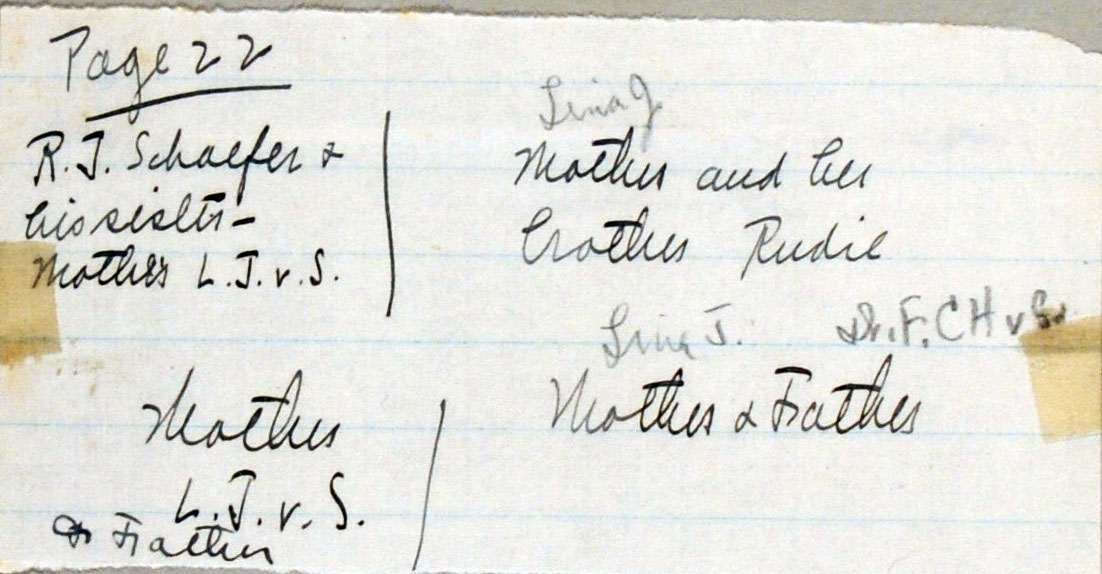 Page 22
R.J. Schaefer &
his sister -
Mother L.J.v.S.
Lina J
Mother and her
brother Rudie
Lina J. Dr. F.C.H v S.
Mother & Father
Mother
L.J.v.S.
& Father